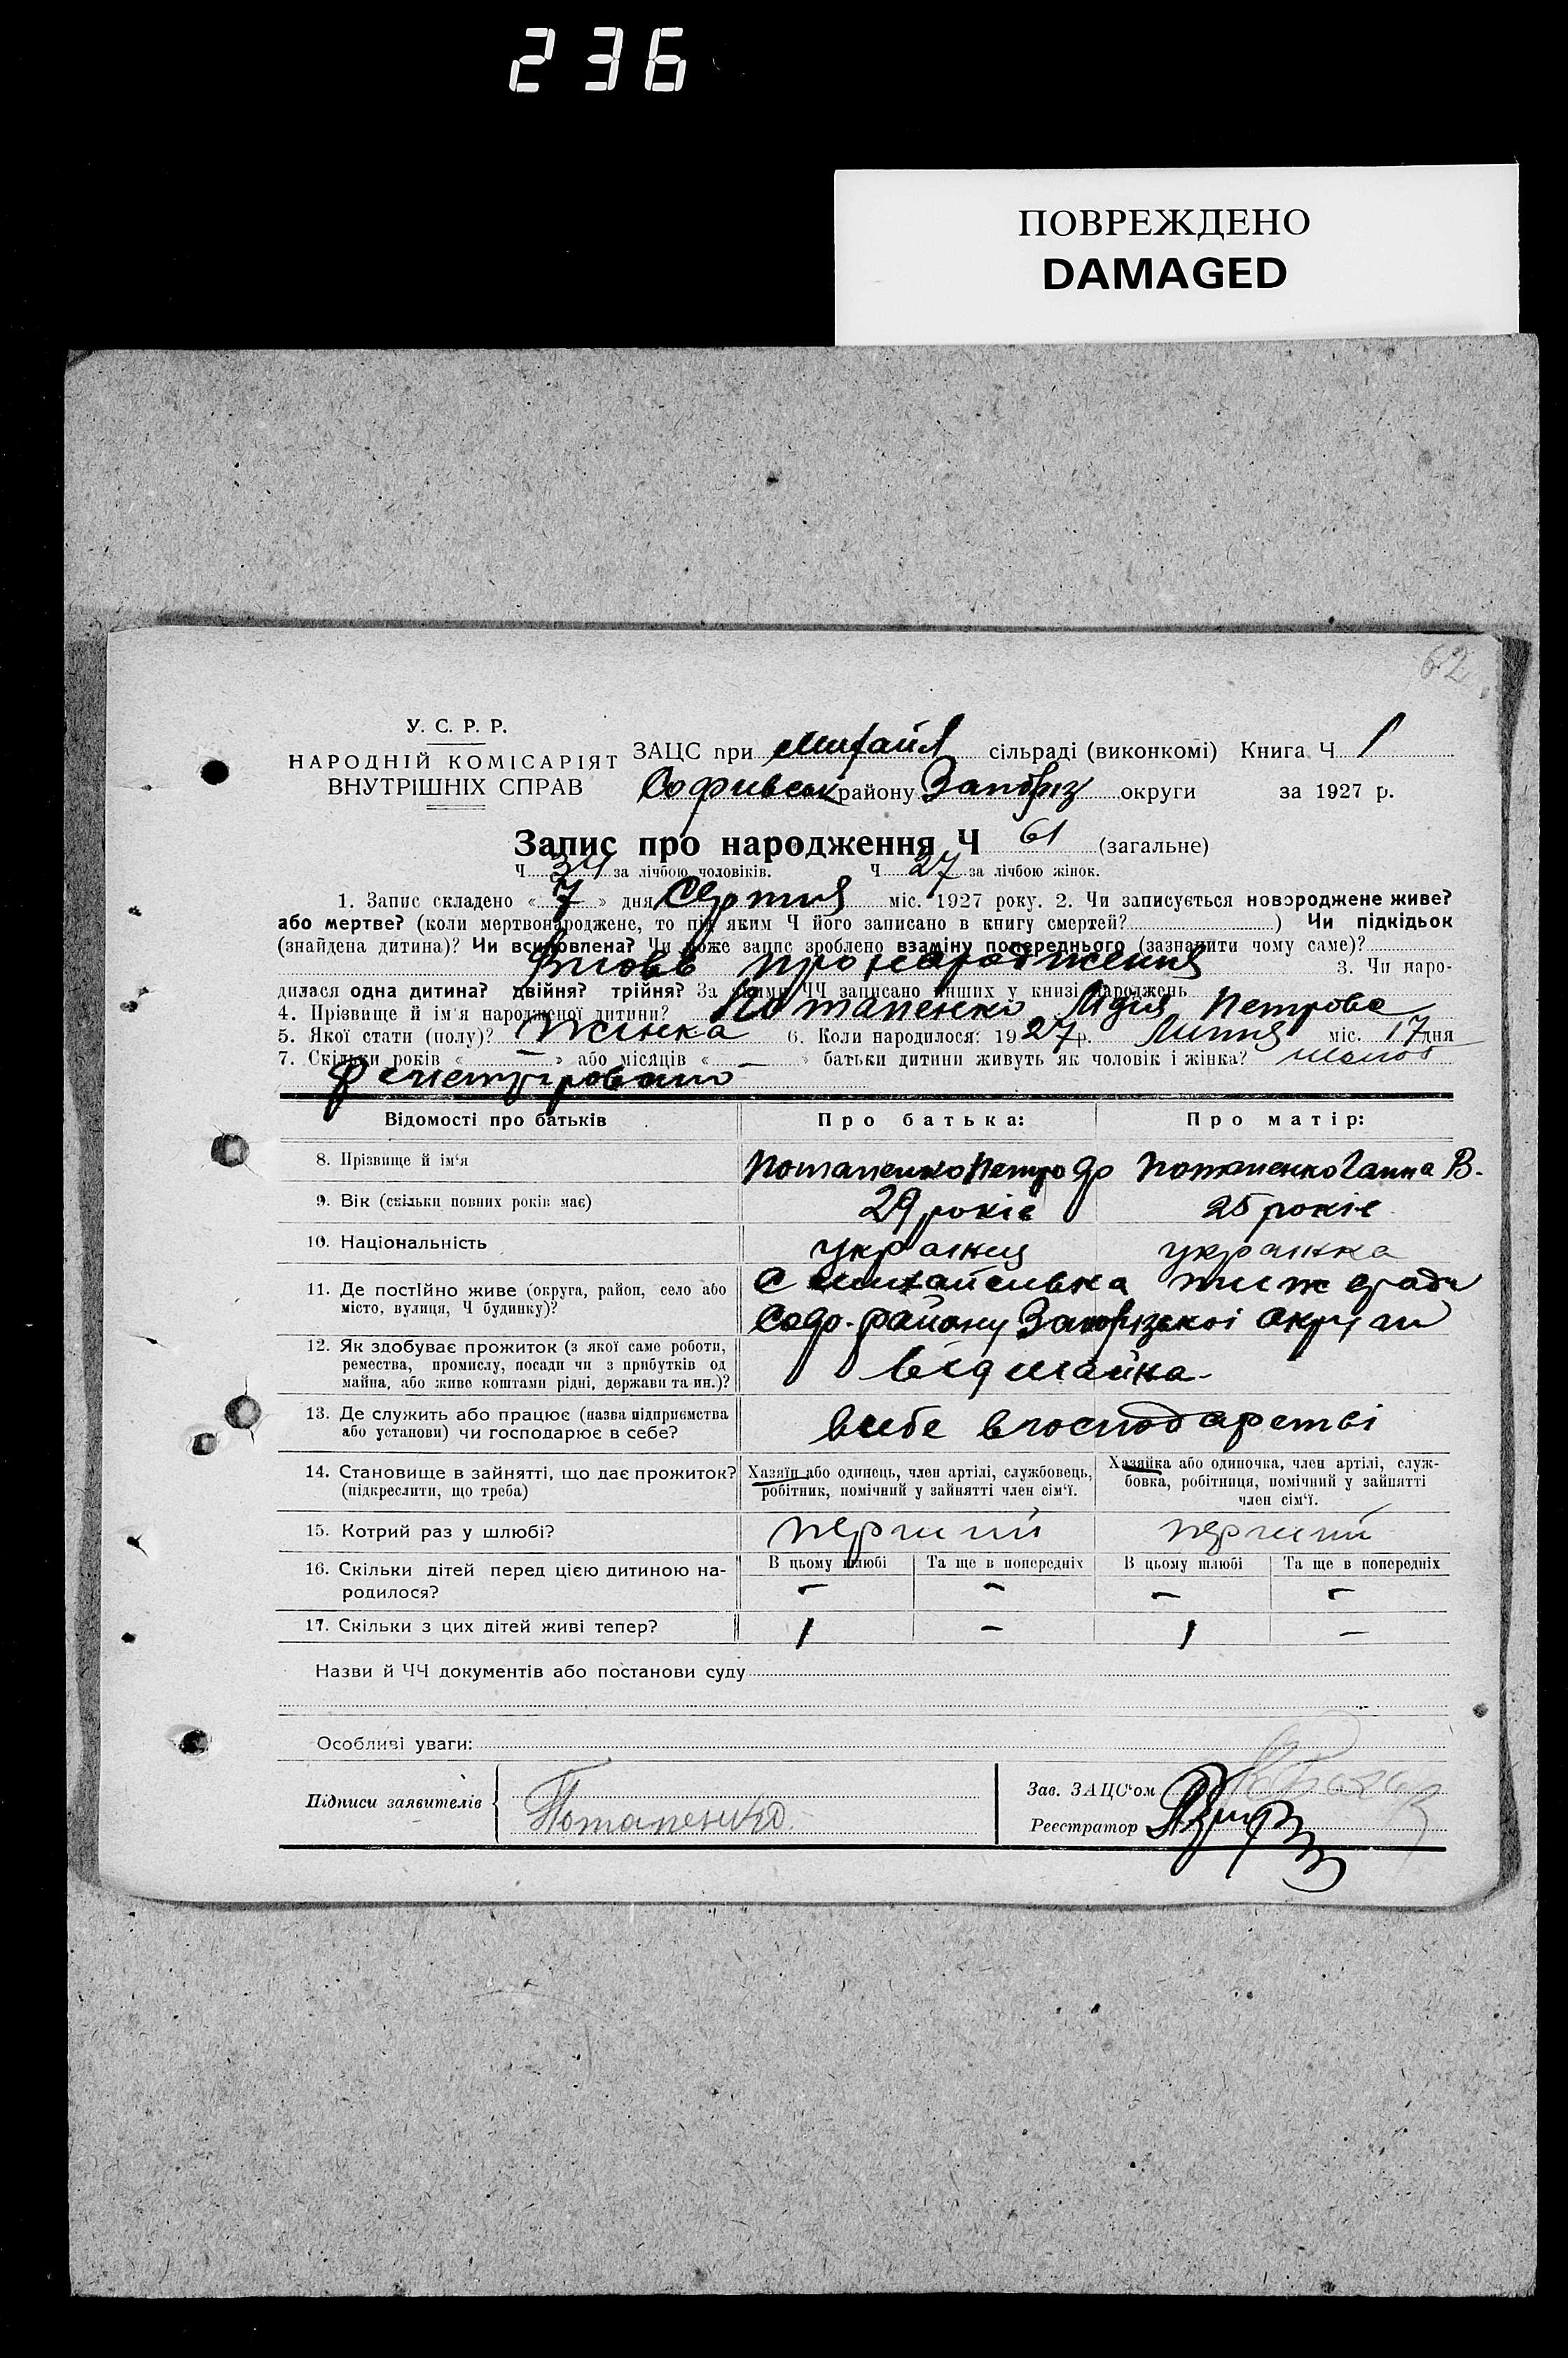 236
ПОВРЕЖДЕНО
DAMAGED
62
У. С. Р. Р.
НАРОДНІЙ КОМІСАРІЯТ
ВНУТРІШНІХ СПРАВ
ЗАЦС при Михайл сільраді (виконкомі) Книга Ч 1
Софиевськ району Запоріз округи за 1927 р.
Запис про народження Ч 61 (загальне)
Ч 34 за лічбою чоловіків. Ч 27 за лічбою жінок.
1. Запис складено « 7 » дня Серпня міс. 1927 року. 2. Чи записується новороджене живе?
або мертве? (коли мертвонароджене, то під яким Ч його записано в книгу смертей? ) Чи підкідьок
(знайдена дитина)? Чи всиновлена? Чи може запис зроблено взаміну попереднього (зазначити чому саме)?
про народження 3. Чи наро-
дилася одна дитина? двійня? трійня? За якими ЧЧ записано инших у книзі народжень
4. Прізвище й ім'я народженої дитини? Потапенко Лідія Петрова
5. Якої стати (полу)? Жінка 6. Коли народилося: 1927 р. Липня міс. 17 дня
7. Скільки років « — » або місяців « — » батьки дитини живуть як чоловік і жінка? шлюб
Відомості про батьків
Про батька:
Про матір:
8. Прізвище й ім‘я
Потапенко Петро Фр
Потапенко Ганна В.
9. Вік (скільки повних років має)
29 років
25 років
10. Національність
українец
українка
11. Де постійно живе (округа, район, село або
місто, вулиця, Ч будинку)?
С Михайливка тиж сради
Соф. району Запорізької Округи
12. Як здобуває прожиток (з якої саме роботи,
ремества, промислу, посади чи з прибутків од
майна, або живе коштами рідні, держави та ин.)?
від майна
13. Де служить або працює (назва підприємства
або установи) чи господарює в себе?
всебе вгосподарстві
14. Становище в зайнятті, що дає прожиток?
(підкреслити, що треба)
Хазяїн або одинець, член артілі, службовець,
робітник, помічний у зайнятті член сім‘ї.
Хазяйка або одиночка, член артілі, служ-
бовка, робітниця, помічний у зайнятті
член сім‘ї.
15. Котрий раз у шлюбі?
перший
перший
16. Скільки дітей перед цією дитиною на-
родилося?
В цьому шлюбі
Та ще в попередніх
В цьому шлюбі
Та ще в попередніх
— — — —
17. Скільки з цих дітей живі тепер?
1 — 1 —
Назви й ЧЧ документів або постанови суду
Особливі уваги:
Підписи заявителів
Потапенко
Зав. ЗАЦС‘ом
Реєстратор